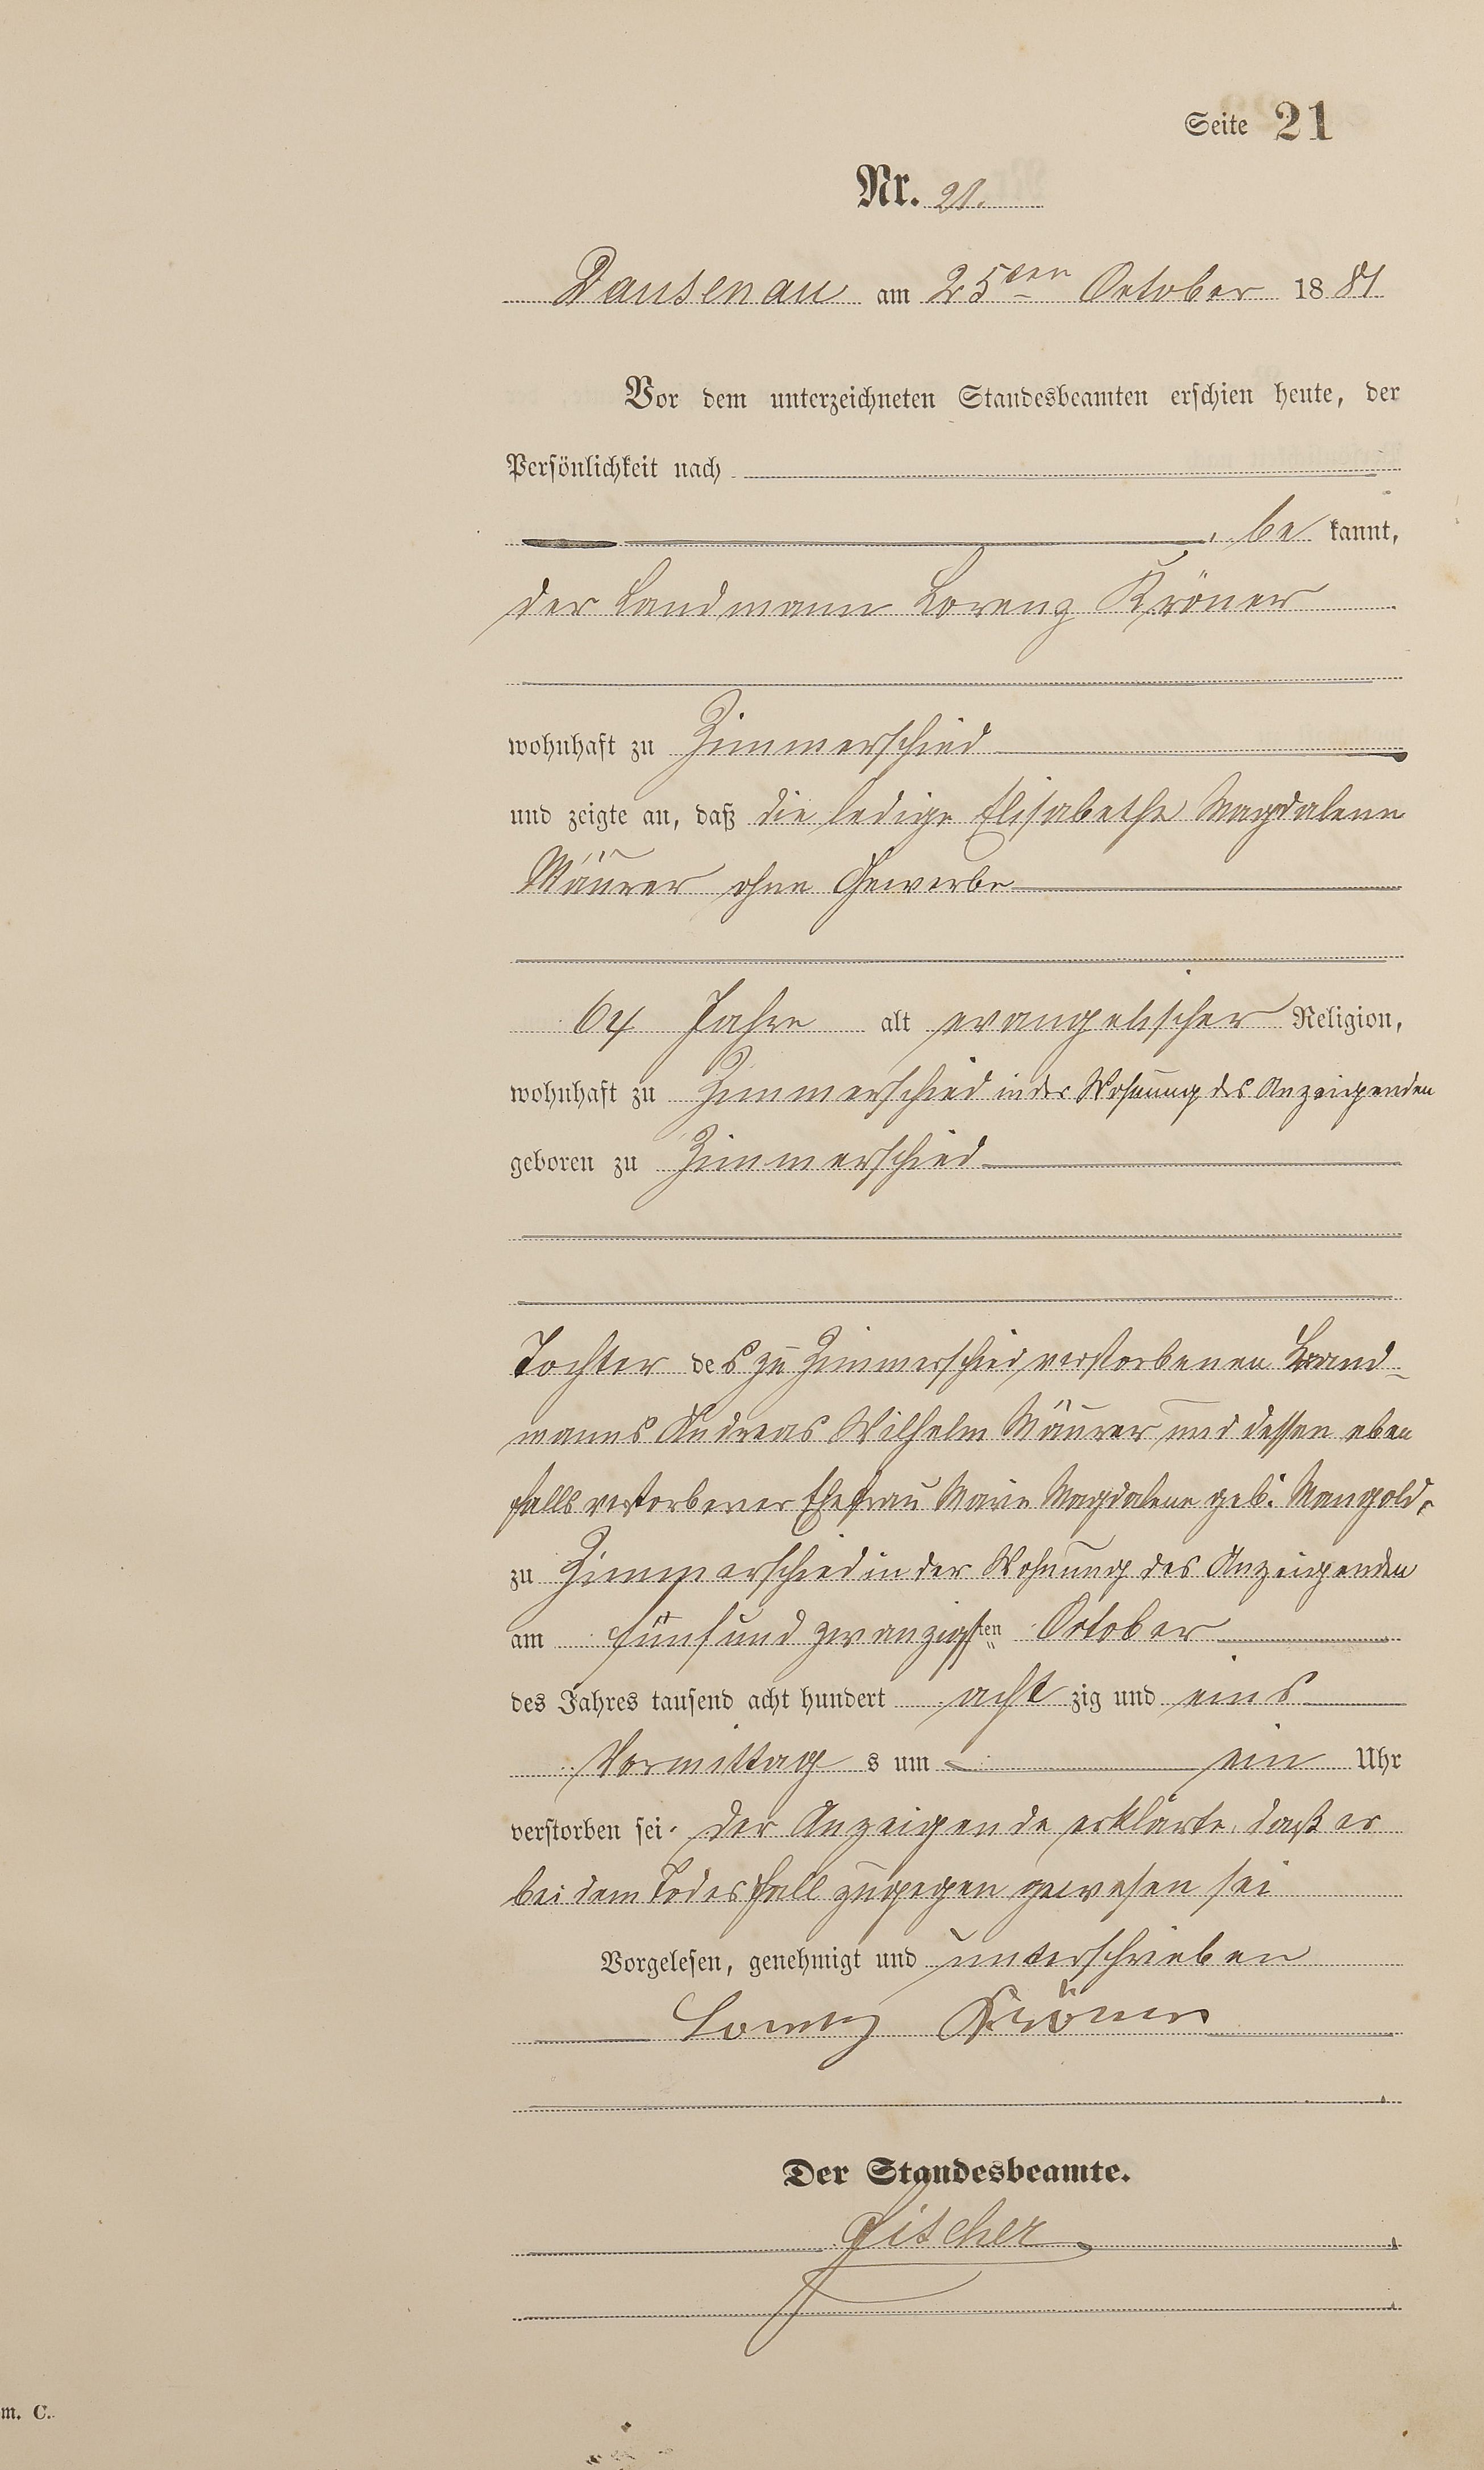 Seite 21
Nr. 21.
Dausenau am 25ten October 1881
Vor dem unterzeichneten Standesbeamten erschien heute, der
Persönlichkeit nach
, be kannt,
der Landmann Lorenz Kröner
wohnhaft zu Zimmerschied
und zeigte an, daß die ledige Elisabethe Magdalene
Mäurer ohne Gewerbe
64 Jahre alt evangelischer Religion,
wohnhaft zu Zimmerschied in der Wohnung des Anzeigenden
geboren zu Zimmerschied
Tochter des zu Zimmerschied verstorbenen Land-
manns Andreas Wilhelm Mäurer und dessen eben
falls verstorbener Ehefrau Marie Magdalene geb. Mangold,
zu Zimmerschied in der Wohnung des Anzeigenden
am fünfundzwanzigsten October
des Jahres tausend acht hundert acht zig und eins
Vormittag s um ein Uhr
verstorben sei. Der Anzeigende erklärte, daß er
bei dem Todesfall zugegen gewesen sei
Vorgelesen, genehmigt und unterschrieben
Lorenz Kröner
Der Standesbeamte.
Fischer
m. C.